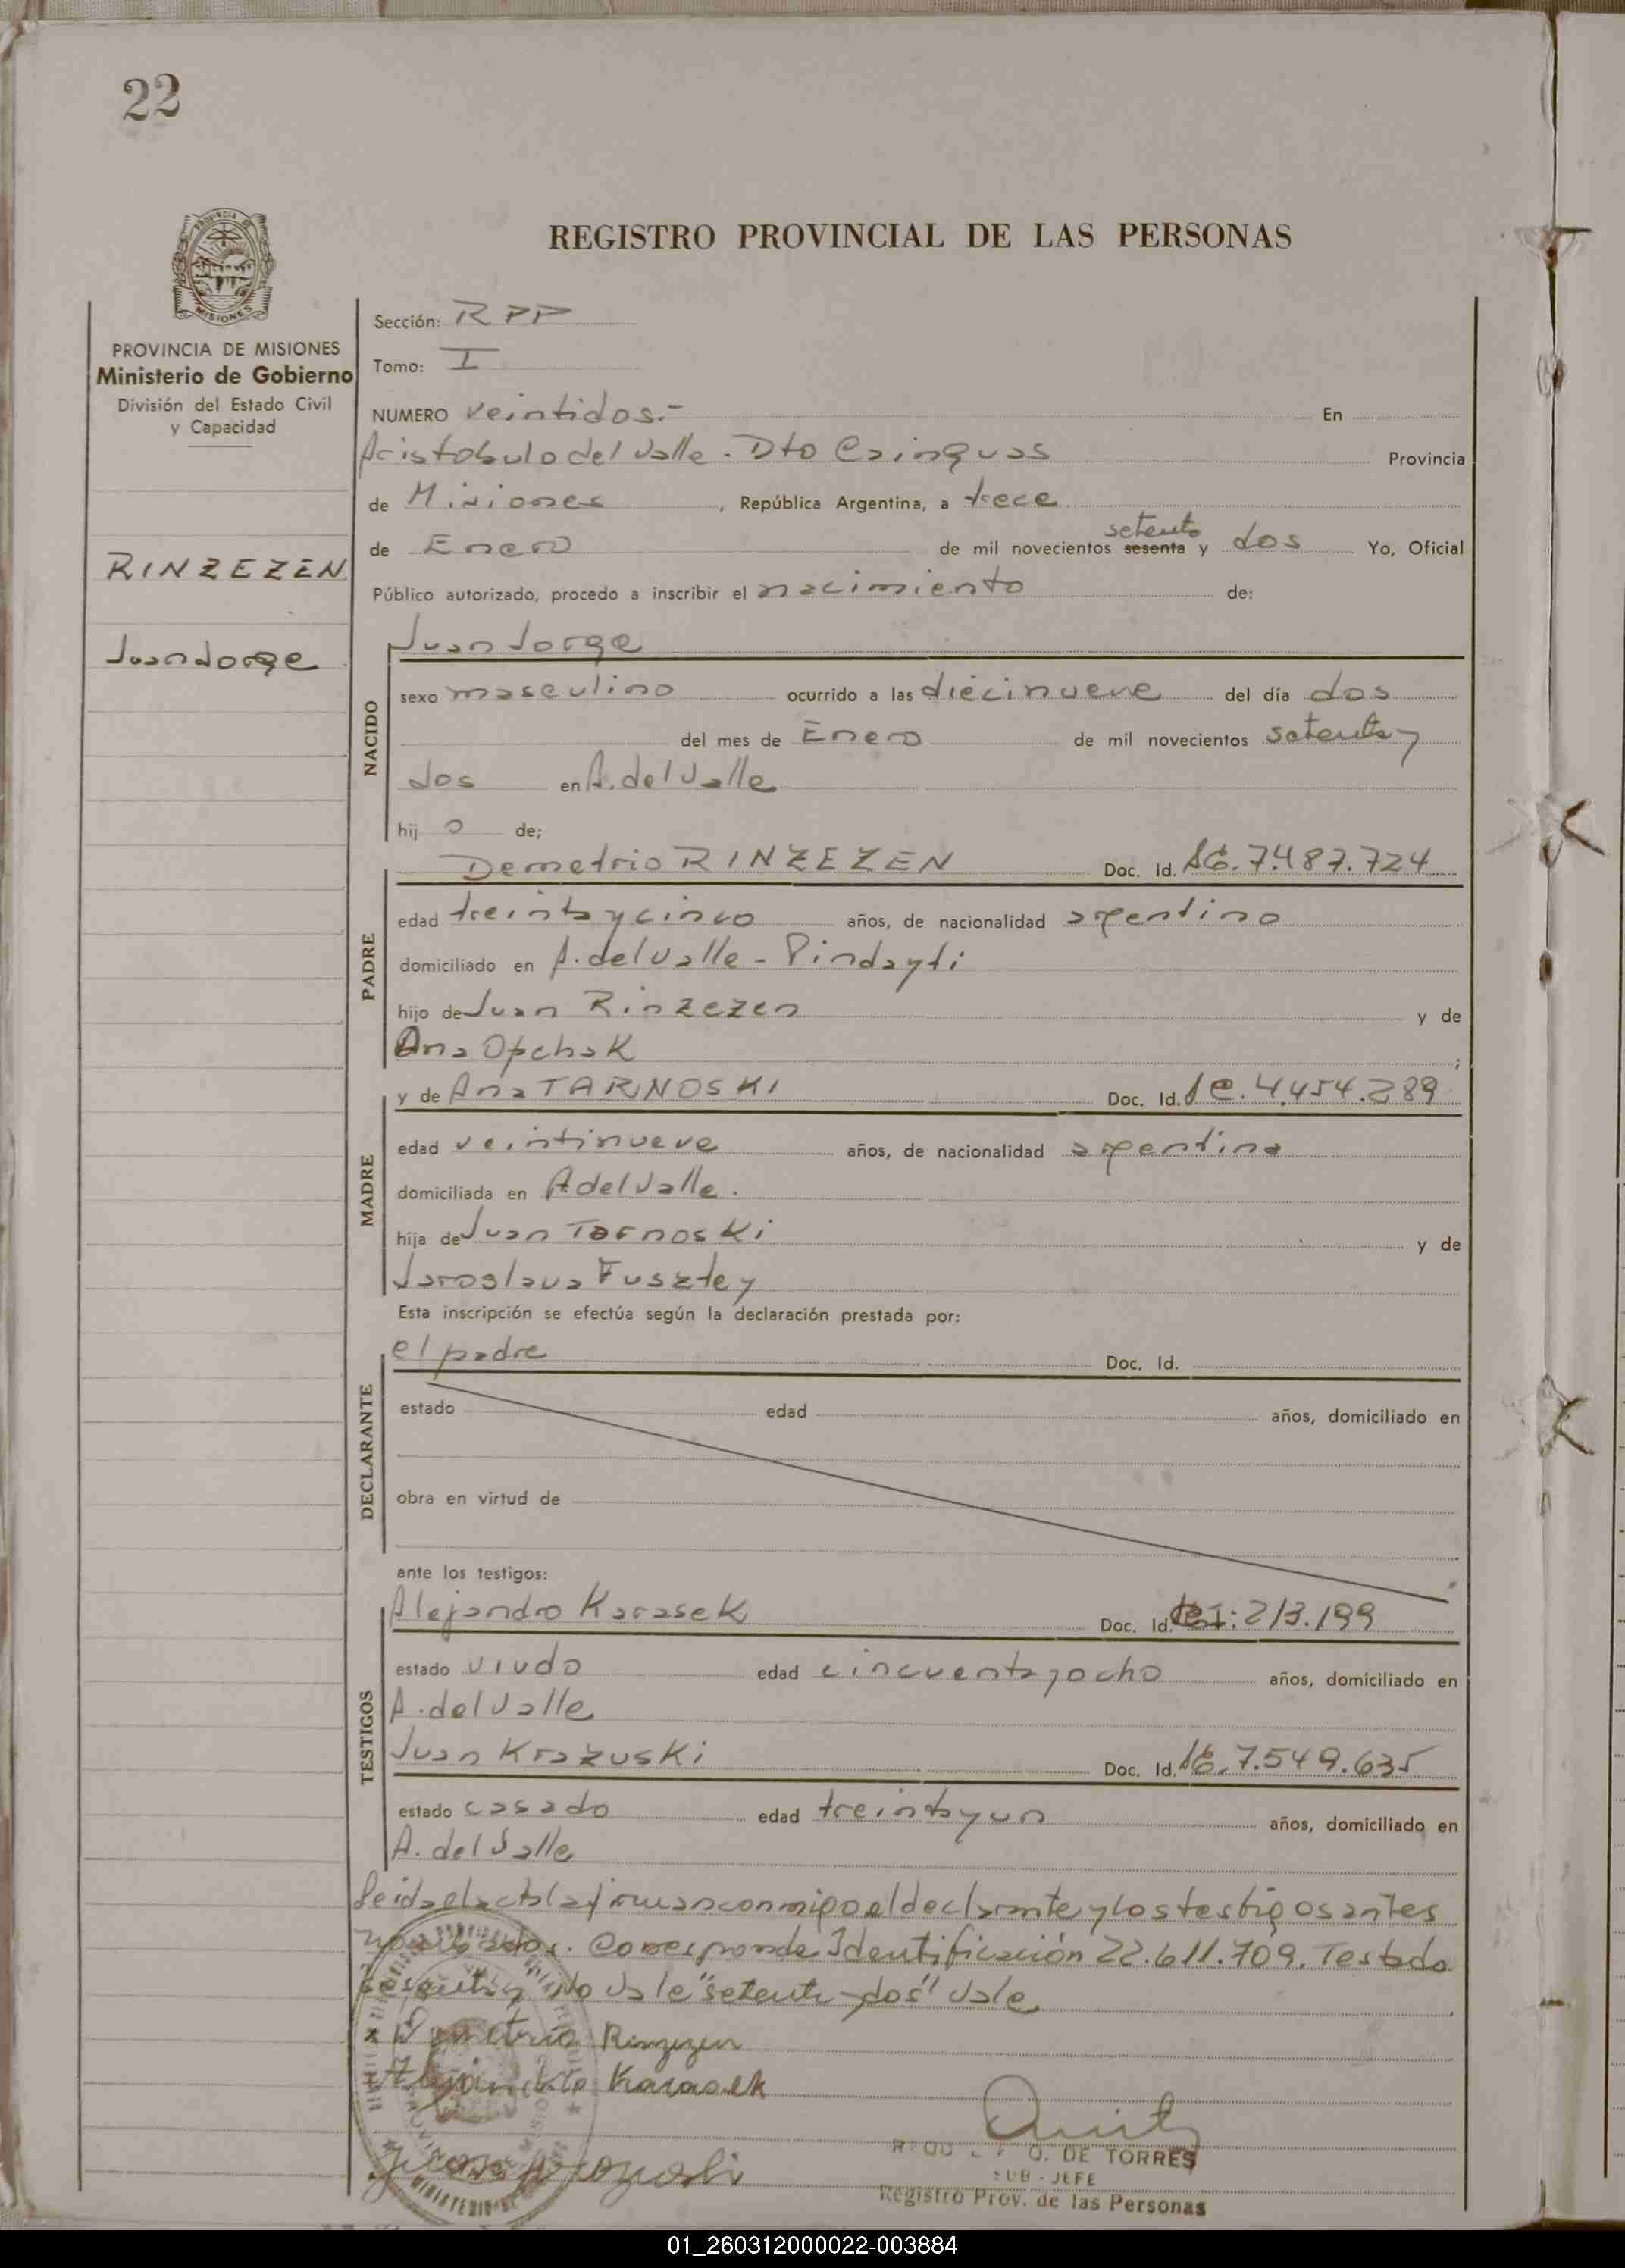 22
REGISTRO PROVINCIAL DE LAS PERSONAS
PROVINCIA DE MISIONES
Ministerio de Gobierno
División del Estado Civil
y Capacidad
RINZEZEN
Juan Jorge
Sección: RPP
Tomo: I
NUMERO veintidos.- En
Aristobulo del Valle. Dto Cainguas Provincia
de Misiones, República Argentina, a trece
setenta
de Enero de mil novecientos sesenta y dos Yo, Oficial
Público autorizado, procedo a inscribir el nacimiento de:
Juan Jorge
NACIDO
sexo masculino ocurrido a las diecinueve del día dos
del mes de Enero de mil novecientos setenta y
dos en A. del Valle
hij o de;
PADRE
Demetrio RINZEZEN Doc. Id. LE. 7.487.724
edad treinta y cinco años, de nacionalidad argentino
domiciliado en A. del Valle - Pindayti
hijo de Juan Rinzezen y de
Ana Opchak ;
MADRE
y de Ana TARNOSKI Doc. Id. LC. 4.454.289
edad veintinueve años, de nacionalidad argentina
domiciliada en A del Valle.
hija de Juan Tarnoski y de
Jaroslava Fusztey
Esta inscripción se efectúa según la declaración prestada por:
DECLARANTE
el padre Doc. Id.
estado edad años, domiciliado en
obra en virtud de
ante los testigos:
TESTIGOS
Alejandro Karasek Doc. Id. 213.199
estado viudo edad cincuenta y ocho años, domiciliado en
A. del Valle
Juan Krazuski Doc. Id. LE. 7.549.635
estado casado edad treinta y un años, domiciliado en
A. del Valle
Leida el acta la firman conmigo el declarante y los testigos antes
. Corresponde Identificación 22.611.709. Testado
No vale "setenta y dos" Vale
x Demetrio Rinzezen
Alejandro Karasek
Juan
O. DE TORRES
SUB - JEFE
Registro Prov. de las Personas
01_260312000022-003884